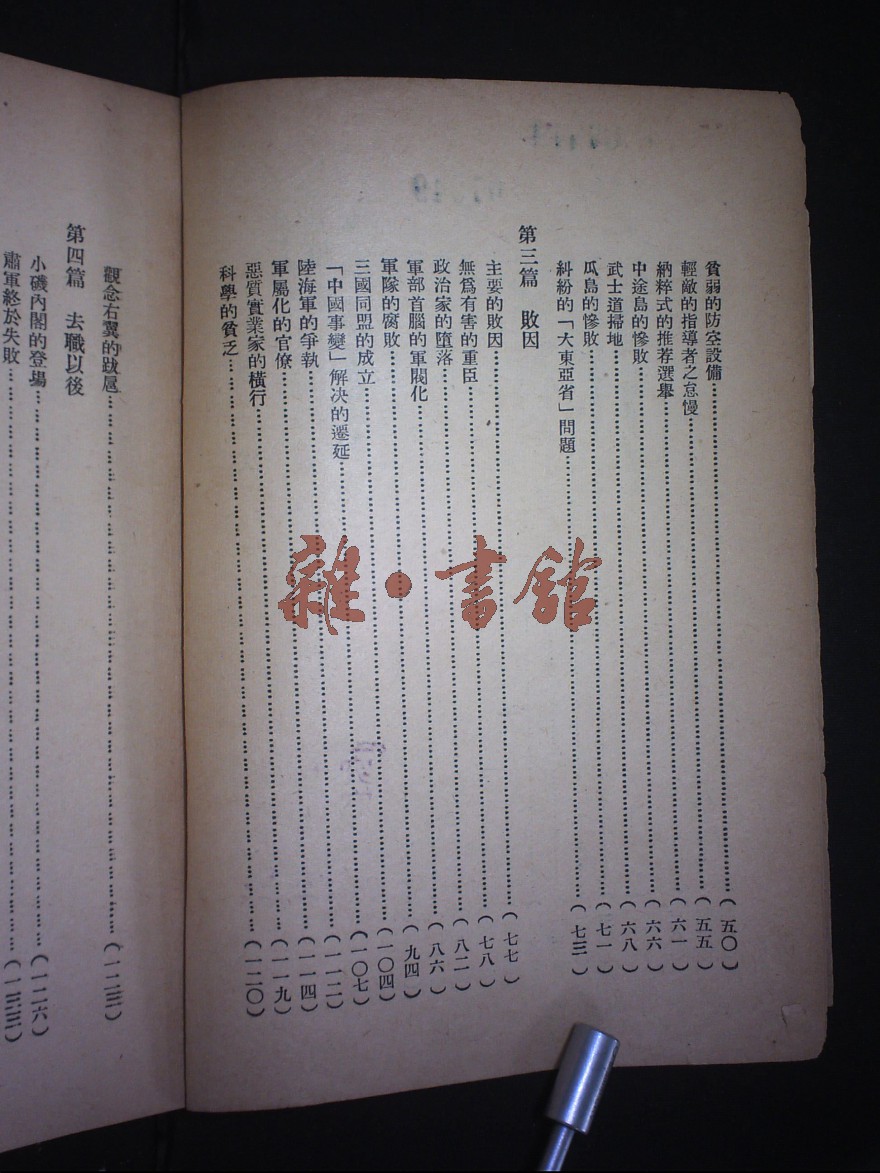 貧弱的防空設備……(五〇)
輕敵的指導者之怠慢……(五五)
納粹式的推荐選舉……(六一)
中途島的慘敗……(六六)
武士道掃地……(六八)
瓜島的慘敗……(七一)
糾紛的「大東亞省」問題……(七三)
第三篇 敗因
主要的敗因……(七七)
無爲有害的重臣……(七八)
政治家的墮落……(八二)
軍部首腦的軍閥化……(八六)
軍隊的腐敗……(九四)
三國同盟的成立……(一〇四)
「中國事變」解決的遷延……(一〇七)
陸海軍的爭執……(一一二)
軍屬化的官僚……(一一四)
惡質實業家的橫行……(一一九)
科學的貧乏……(一二〇)
觀念右翼的跋扈……(一二三)
第四篇 去職以後
小磯內閣的登場……(一二六)
肅軍終於失敗……(一三三)
雜·書館